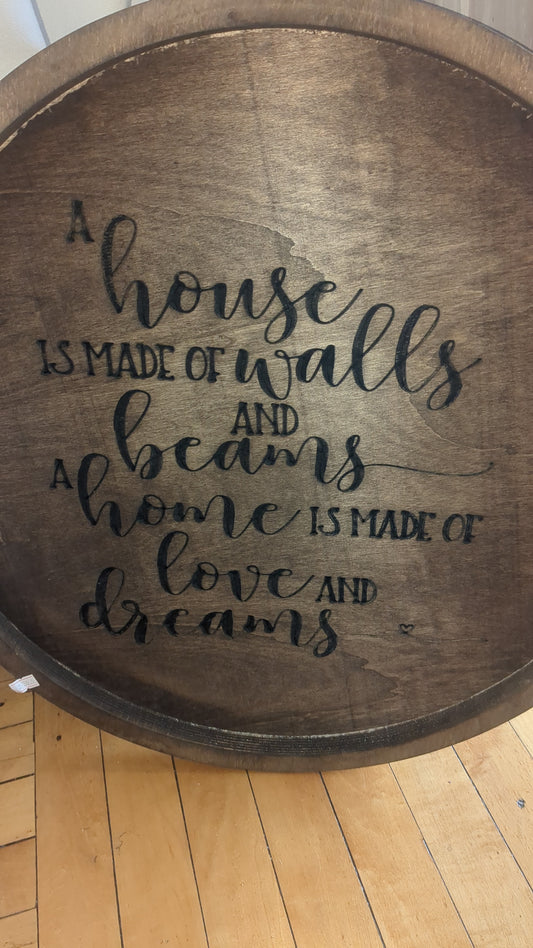 A
house
IS MADE OF walls
AND
beams
A home IS MADE OF
love AND
dreams